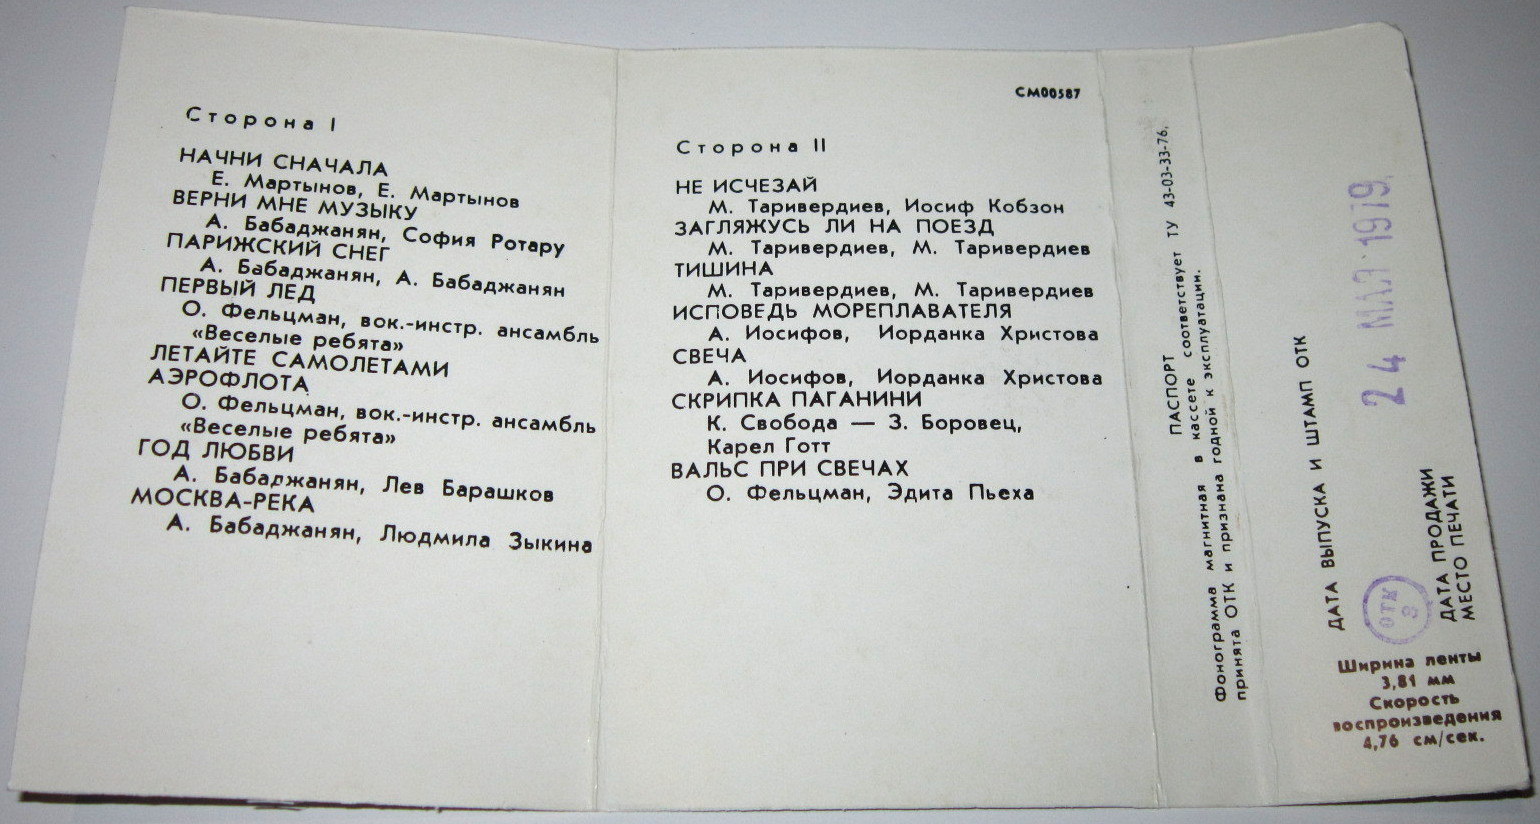 Сторона I
НАЧНИ СНАЧАЛА
Е. Мартынов, Е. Мартынов
ВЕРНИ МНЕ МУЗЫКУ
А. Бабаджанян, София Ротару
ПАРИЖСКИЙ СНЕГ
А. Бабаджанян, А. Бабаджанян
ПЕРВЫЙ ЛЕД
О. Фельцман, вок.-инстр. ансамбль
«Веселые ребята»
ЛЕТАЙТЕ САМОЛЕТАМИ
АЭРОФЛОТА
О. Фельцман, вок.-инстр. ансамбль
«Веселые ребята»
ГОД ЛЮБВИ
А. Бабаджанян, Лев Барашков
МОСКВА-РЕКА
А. Бабаджанян, Людмила Зыкина
СМ00587
Сторона II
НЕ ИСЧЕЗАЙ
М. Таривердиев, Иосиф Кобзон
ЗАГЛЯЖУСЬ ЛИ НА ПОЕЗД
М. Таривердиев, М. Таривердиев
ТИШИНА
М. Таривердиев, М. Таривердиев
ИСПОВЕДЬ МОРЕПЛАВАТЕЛЯ
А. Иосифов, Иорданка Христова
СВЕЧА
А. Иосифов, Иорданка Христова
СКРИПКА ПАГАНИНИ
К. Свобода — З. Боровец,
Карел Готт
ВАЛЬС ПРИ СВЕЧАХ
О. Фельцман, Эдита Пьеха
ПАСПОРТ
Фонограмма магнитная в кассете соответствует ТУ 43-03-33-76,
принята ОТК и признана годной к эксплуатации.
ДАТА ВЫПУСКА И ШТАМП ОТК
24 МАЯ 1979
ОТК
8
ДАТА ПРОДАЖИ
МЕСТО ПЕЧАТИ
Ширина ленты
3,81 мм
Скорость
воспроизведения
4,76 см/сек.